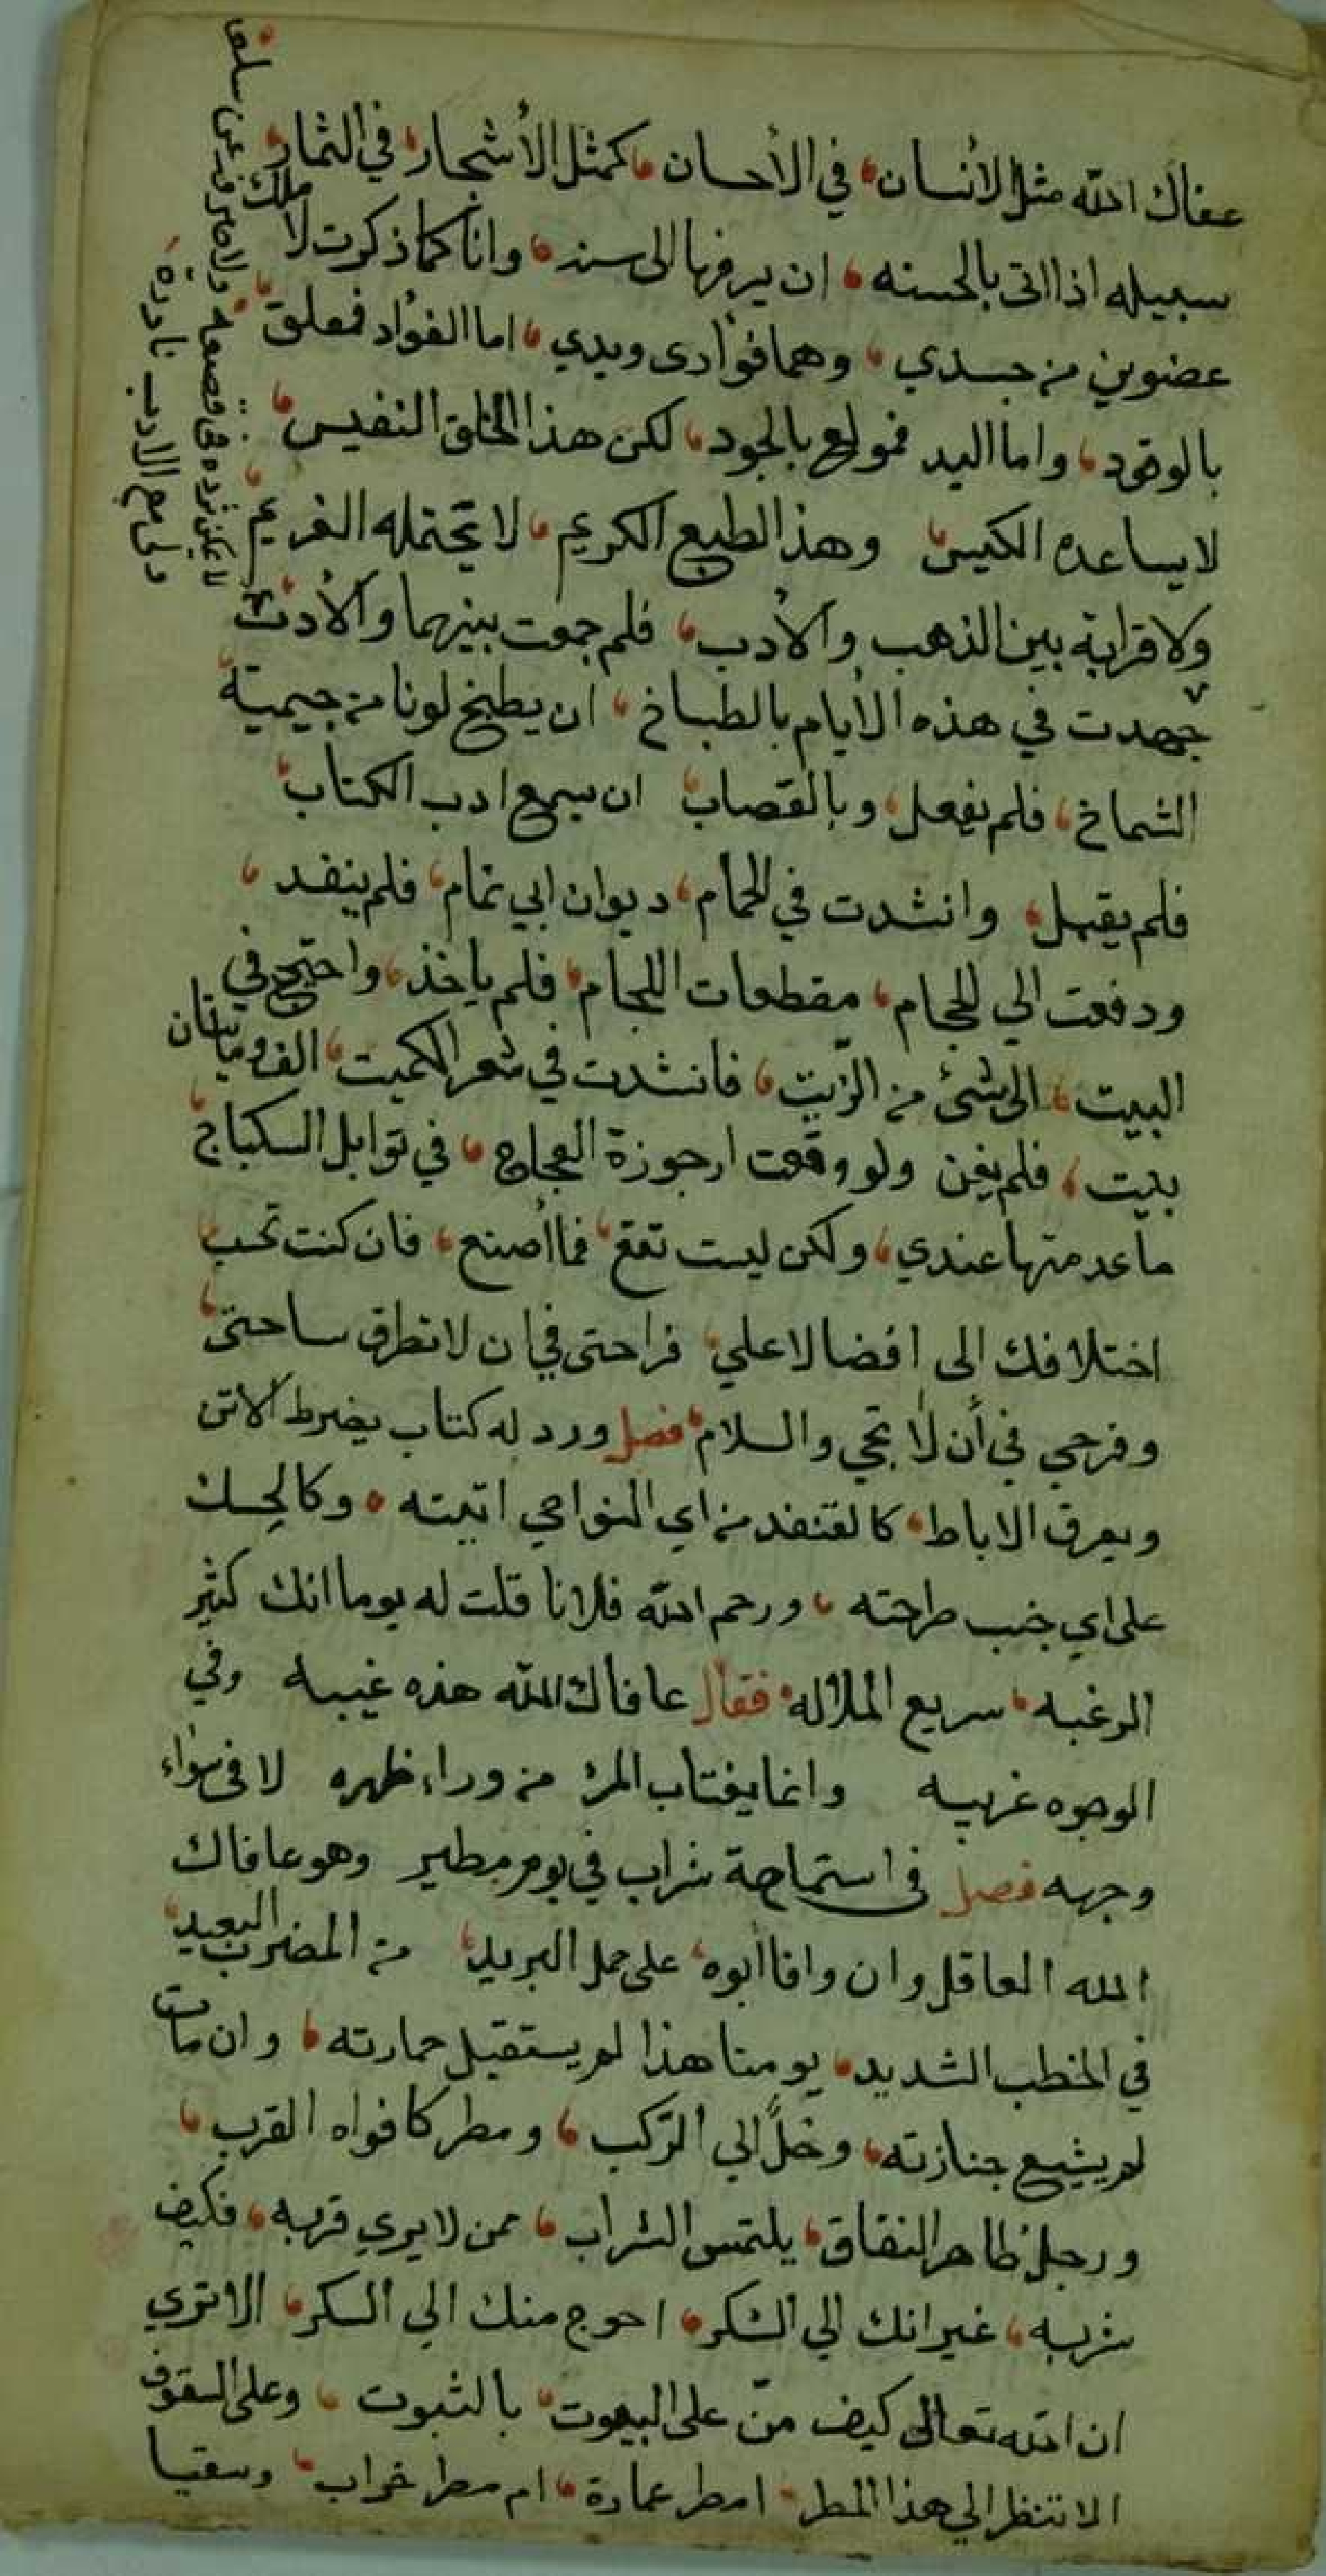 عفاك الله مثل الأنسان في الأحسان كمثل الأشجار في الثمار
سبيله اذا اتى بالحسنه ان يرفها الى سنه وانا كما ذكرت لا املك
عضوين من جسدي وهما فوادى ويدي اما الفواد فعلق
بالوفود واما اليد فمولع بالجود لكن هذا الخلق النفيس
لا يساعده الكيس وهذا الطبع الكريم لا تحتمله الغريم
ولا قرابة بين الذهب والأدب فلم جمعت بينهما والأدب
جهدت في هذه الأيام بالطباخ ان يطبخ لونا من جيمية
الشماخ فلم يفعل وبالقصاب ان يسمع ادب الكتاب
فلم يقبل وانشدت في الحمام ديوان ابي تمام فلم ينفد
ودفعت الي الحجام مقطعات اللجام فلم ياخذ واحتيج في
البيت الى شئ من الزيت فانشدت في شعر الكميت الف ومايتان
بيت فلم يغن ولو وقعت ارجوزة العجاج في توابل السكباج
ما عدمتها عندي ولكن ليست تقع فما أصنع فان كنت تحسب
اختلافك الى افضالا علي فراحتى في ان لا تطرق ساحتى
وفرجي في أن لا تجي والسلام فصل ورد له كتاب يضرط الاتن
ويعرق الاباط كالقنفد من اي النواحي اتيته وكالحسك
على اي جنب طرحته ورحم الله فلانا قلت له يوما انك كثير
الرغبه سريع الملاله فقال عافاك الله هذه غيبه وفي
الوجوه غريبه وانما يغتاب المرء من وراء ظهره لا في سواء
وجهه فصل في استماحة شراب في يوم مطير وهو عافاك
الله العاقل وان وافا ابوه على جمل البريد من المضرب البعيد
في الخطب الشديد يومنا هذا لم يستقبل حمارته وان مات
لم يشيع جنازته وخلّ الي الركب ومطر كافواه القرب
ورجل ظاهر النفاق يلتمس الشراب ممن لا يري قربه فكيف
شربه غير انك الي الشكر احوج منك الي السكر الا تري
ان الله تعالى كيف منّ على البيوت بالثبوت وعلى السقوف
الا تنظر الي هذا المطر امطر عمارة ام مطر خراب وسقيا